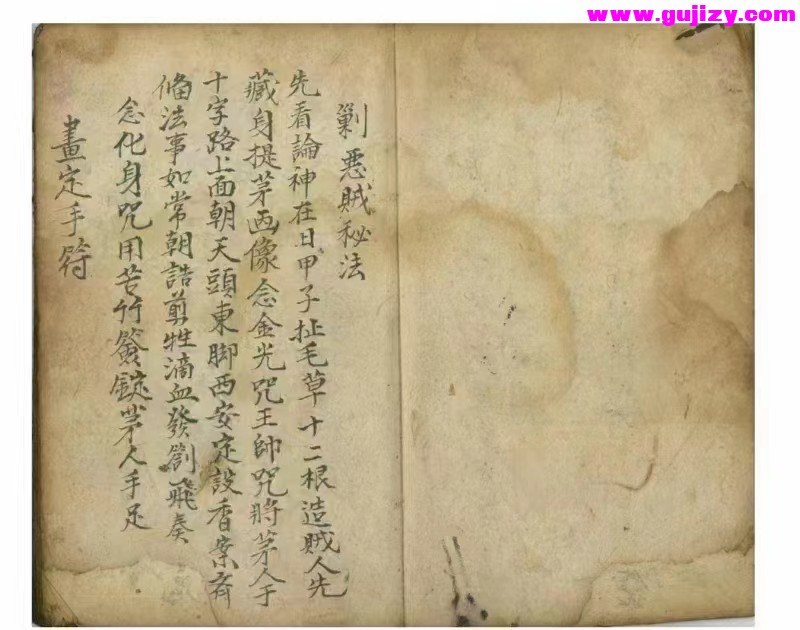 www.gujizy.com
剿惡賊秘法
先看論神在日甲子扯毛草十二根造賊人先
藏身提茅画像念金光咒王帥咒將茅人于
十字路上面朝天頭東脚西安定設香案齊
俻法事如常朝誥剪牲滴血發劄飛奏
念化身咒用苦竹簽錠茅人手足
畫定手符